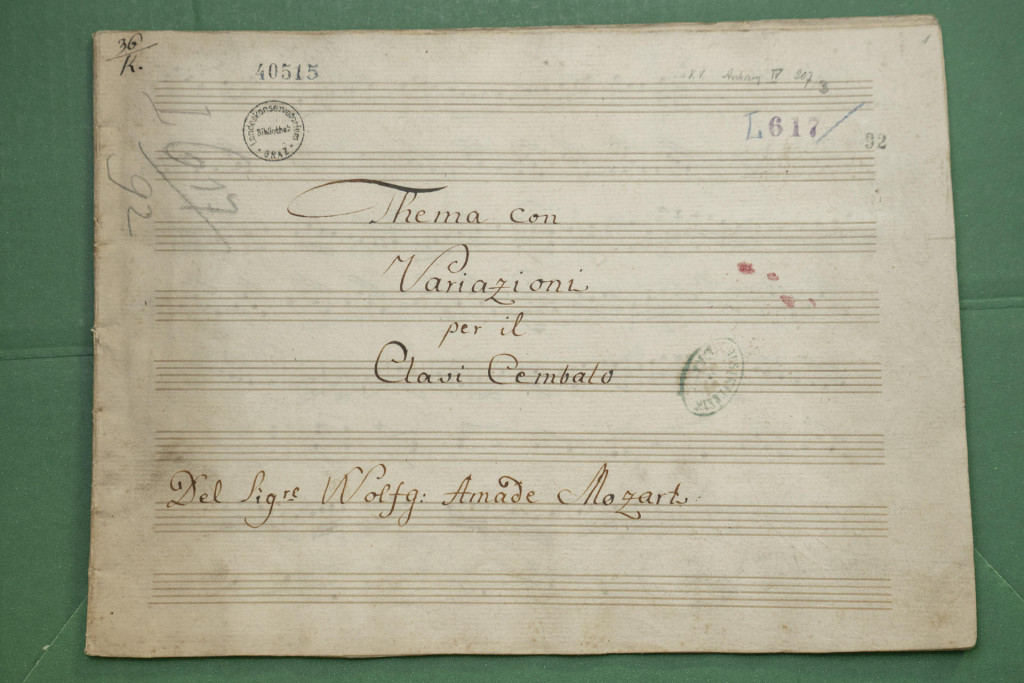 36
K.
40515
Landeskonservatorium
Bibliothek
GRAZ
K.V. Anhang IV 207
3
L617
92
1
I 617
92
Thema con
Variazioni
per il
Clavi Cembalo
Del Sigre Wolfg: Amade Mozart.